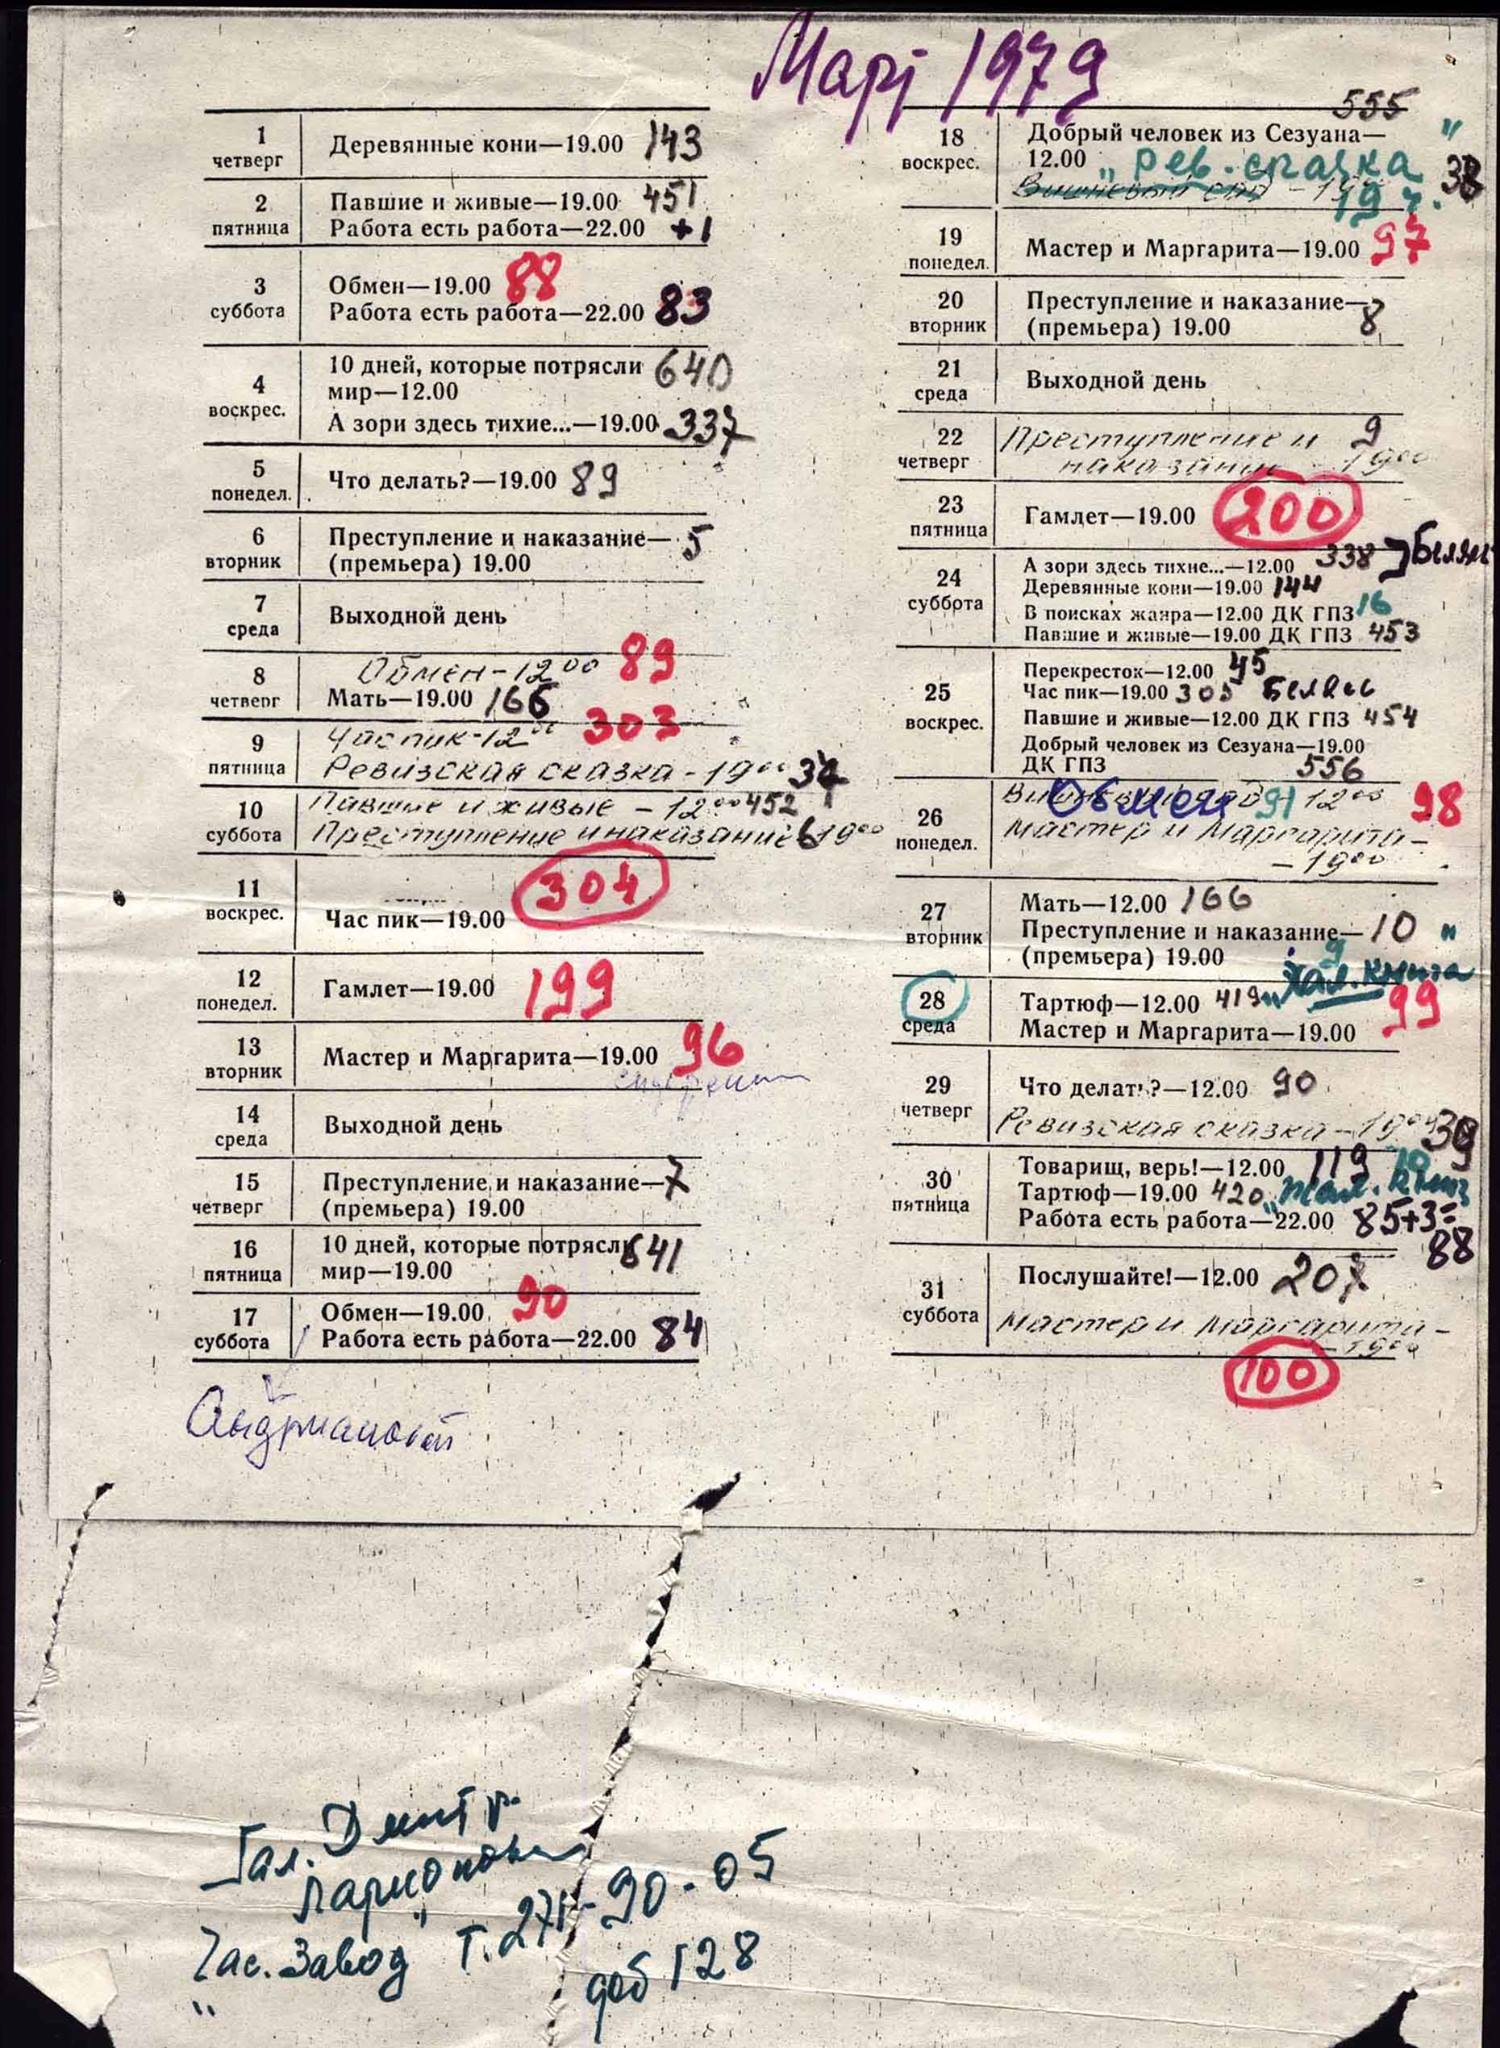 Март 1979
1 четверг
Деревянные кони—19.00 143
2 пятница
Павшие и живые—19.00 451
Работа есть работа—22.00 +1
3 суббота
Обмен—19.00 88
Работа есть работа—22.00 83
4 воскрес.
10 дней, которые потрясли 640
мир—12.00
А зори здесь тихие...—19.00 337
5 понедел.
Что делать?—19.00 89
6 вторник
Преступление и наказание— 5
(премьера) 19.00
7 среда
Выходной день
8 четверг
Обмен-12 00 89
Мать—19.00 166
9 пятница
Час пик-12 00 303
Ревизская сказка-19 00 37
10 суббота
Павшие и живые - 12 00 452
Преступление и наказание 6 19 00
11 воскрес.
304
Час пик—19.00
12 понедел.
Гамлет—19.00 199
13 вторник
Мастер и Маргарита—19.00 96
14 среда
Выходной день
15 четверг
Преступление и наказание—7
(премьера) 19.00
16 пятница
10 дней, которые потрясли 641
мир—19.00
17 суббота
Обмен—19.00 90
Работа есть работа—22.00 84
555
18 воскрес.
Добрый человек из Сезуана—
12.00 „Рев. сказка"
Вишневый сад - 19 19 ч. 38
19 понедел.
Мастер и Маргарита—19.00 97
20 вторник
Преступление и наказание—
(премьера) 19.00 8
21 среда
Выходной день
22 четверг
Преступление и 9
наказание - 19 00
23 пятница
Гамлет—19.00 200
24 суббота
А зори здесь тихие...—12.00 338
Деревянные кони—19.00 144
В поисках жанра—12.00 ДК ГПЗ 16
Павшие и живые—19.00 ДК ГПЗ 453
25 воскрес.
Перекресток—12.00 45
Час пик—19.00 305
Павшие и живые—12.00 ДК ГПЗ 454
Добрый человек из Сезуана—19.00
ДК ГПЗ 556
26 понедел.
Вишневый сад - 12 00 Обмен 91
Мастер и Маргарита- 98
-19 00
27 вторник
Мать—12.00 166
Преступление и наказание—10
(премьера) 19.00
9
„Жал. книга"
28 среда
Тартюф—12.00 419
Мастер и Маргарита—19.00 99
29 четверг
Что делать?—12.00 90
Ревизская сказка-19 00 39
30 пятница
Товарищ, верь!—12.00 119 10
Тартюф—19.00 420 „Жал. книг
Работа есть работа—22.00 85+3=
88
31 суббота
Послушайте!—12.00 207
Мастер и Маргарита-
-19 00
100
Гал. Дмитр.
Ларионова
Час. Завод" Т. 271-90-05
доб 128